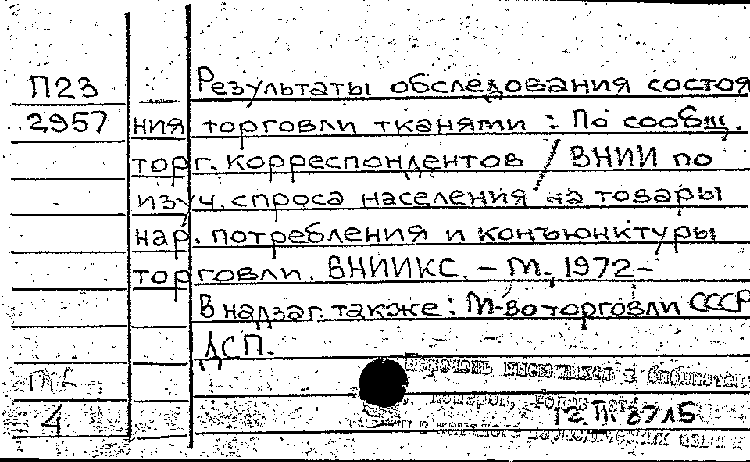 П23 Результаты обследования состоя
2957 ния торговли тканями : По сообщ.
торг. корреспондентов / ВНИИ по
изуч. спроса населения на товары
нар. потребления и конъюнктуры
торговли. ВНИИКС. – М., 1972–
В надзаг. также: М-во торговли СССР
ДСП.